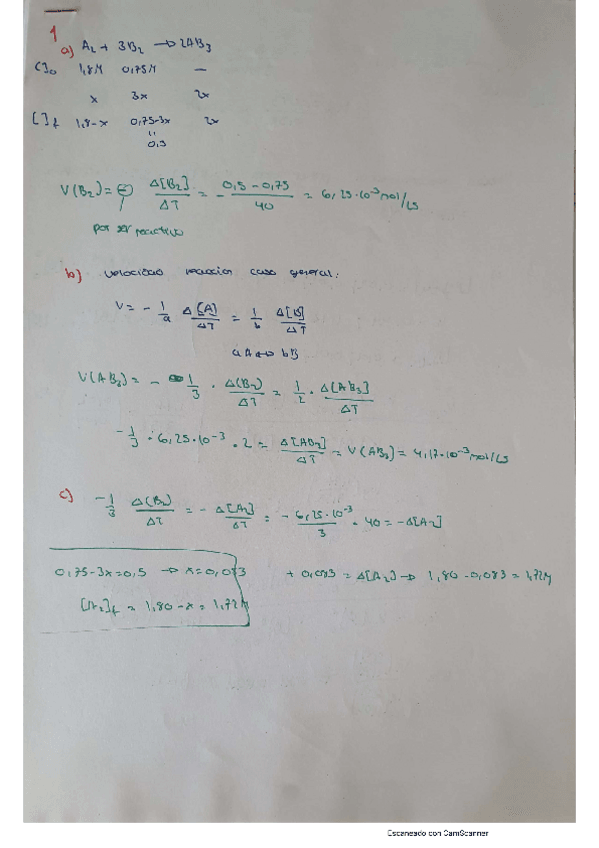 1
a) A₂ + 3B₂ → 2AB₃
[ ]₀ 1,8M 0,75M —
x 3x 2x
[ ]f 1,8-x 0,75-3x 2x
"
0,5
V(B₂) = - Δ[B₂]/ΔT = - (0,5 - 0,75)/40 = 6,25·10⁻³ mol/Ls
por ser reactivo
b) velocidad reaccion caso general:
V = - 1/a Δ[A]/ΔT = 1/b Δ[B]/ΔT
aA ↔ bB
V(AB₃) = - 1/3 · Δ(B₂)/ΔT = 1/2 · Δ[AB₃]/ΔT
- 1/3 · 6,25·10⁻³ · 2 = Δ[AB₃]/ΔT = V(AB₃) = 4,17·10⁻³ mol/Ls
c) - 1/3 Δ(B₂)/ΔT = - Δ[A₂]/ΔT = - 6,25·10⁻³/3 · 40 = -Δ[A₂]
0,75-3x=0,5 → x=0,083
+ 0,083 = Δ[A₂] → 1,80 - 0,083 = 1,72M
[A₂]f = 1,80 - x = 1,72M
Escaneado con CamScanner